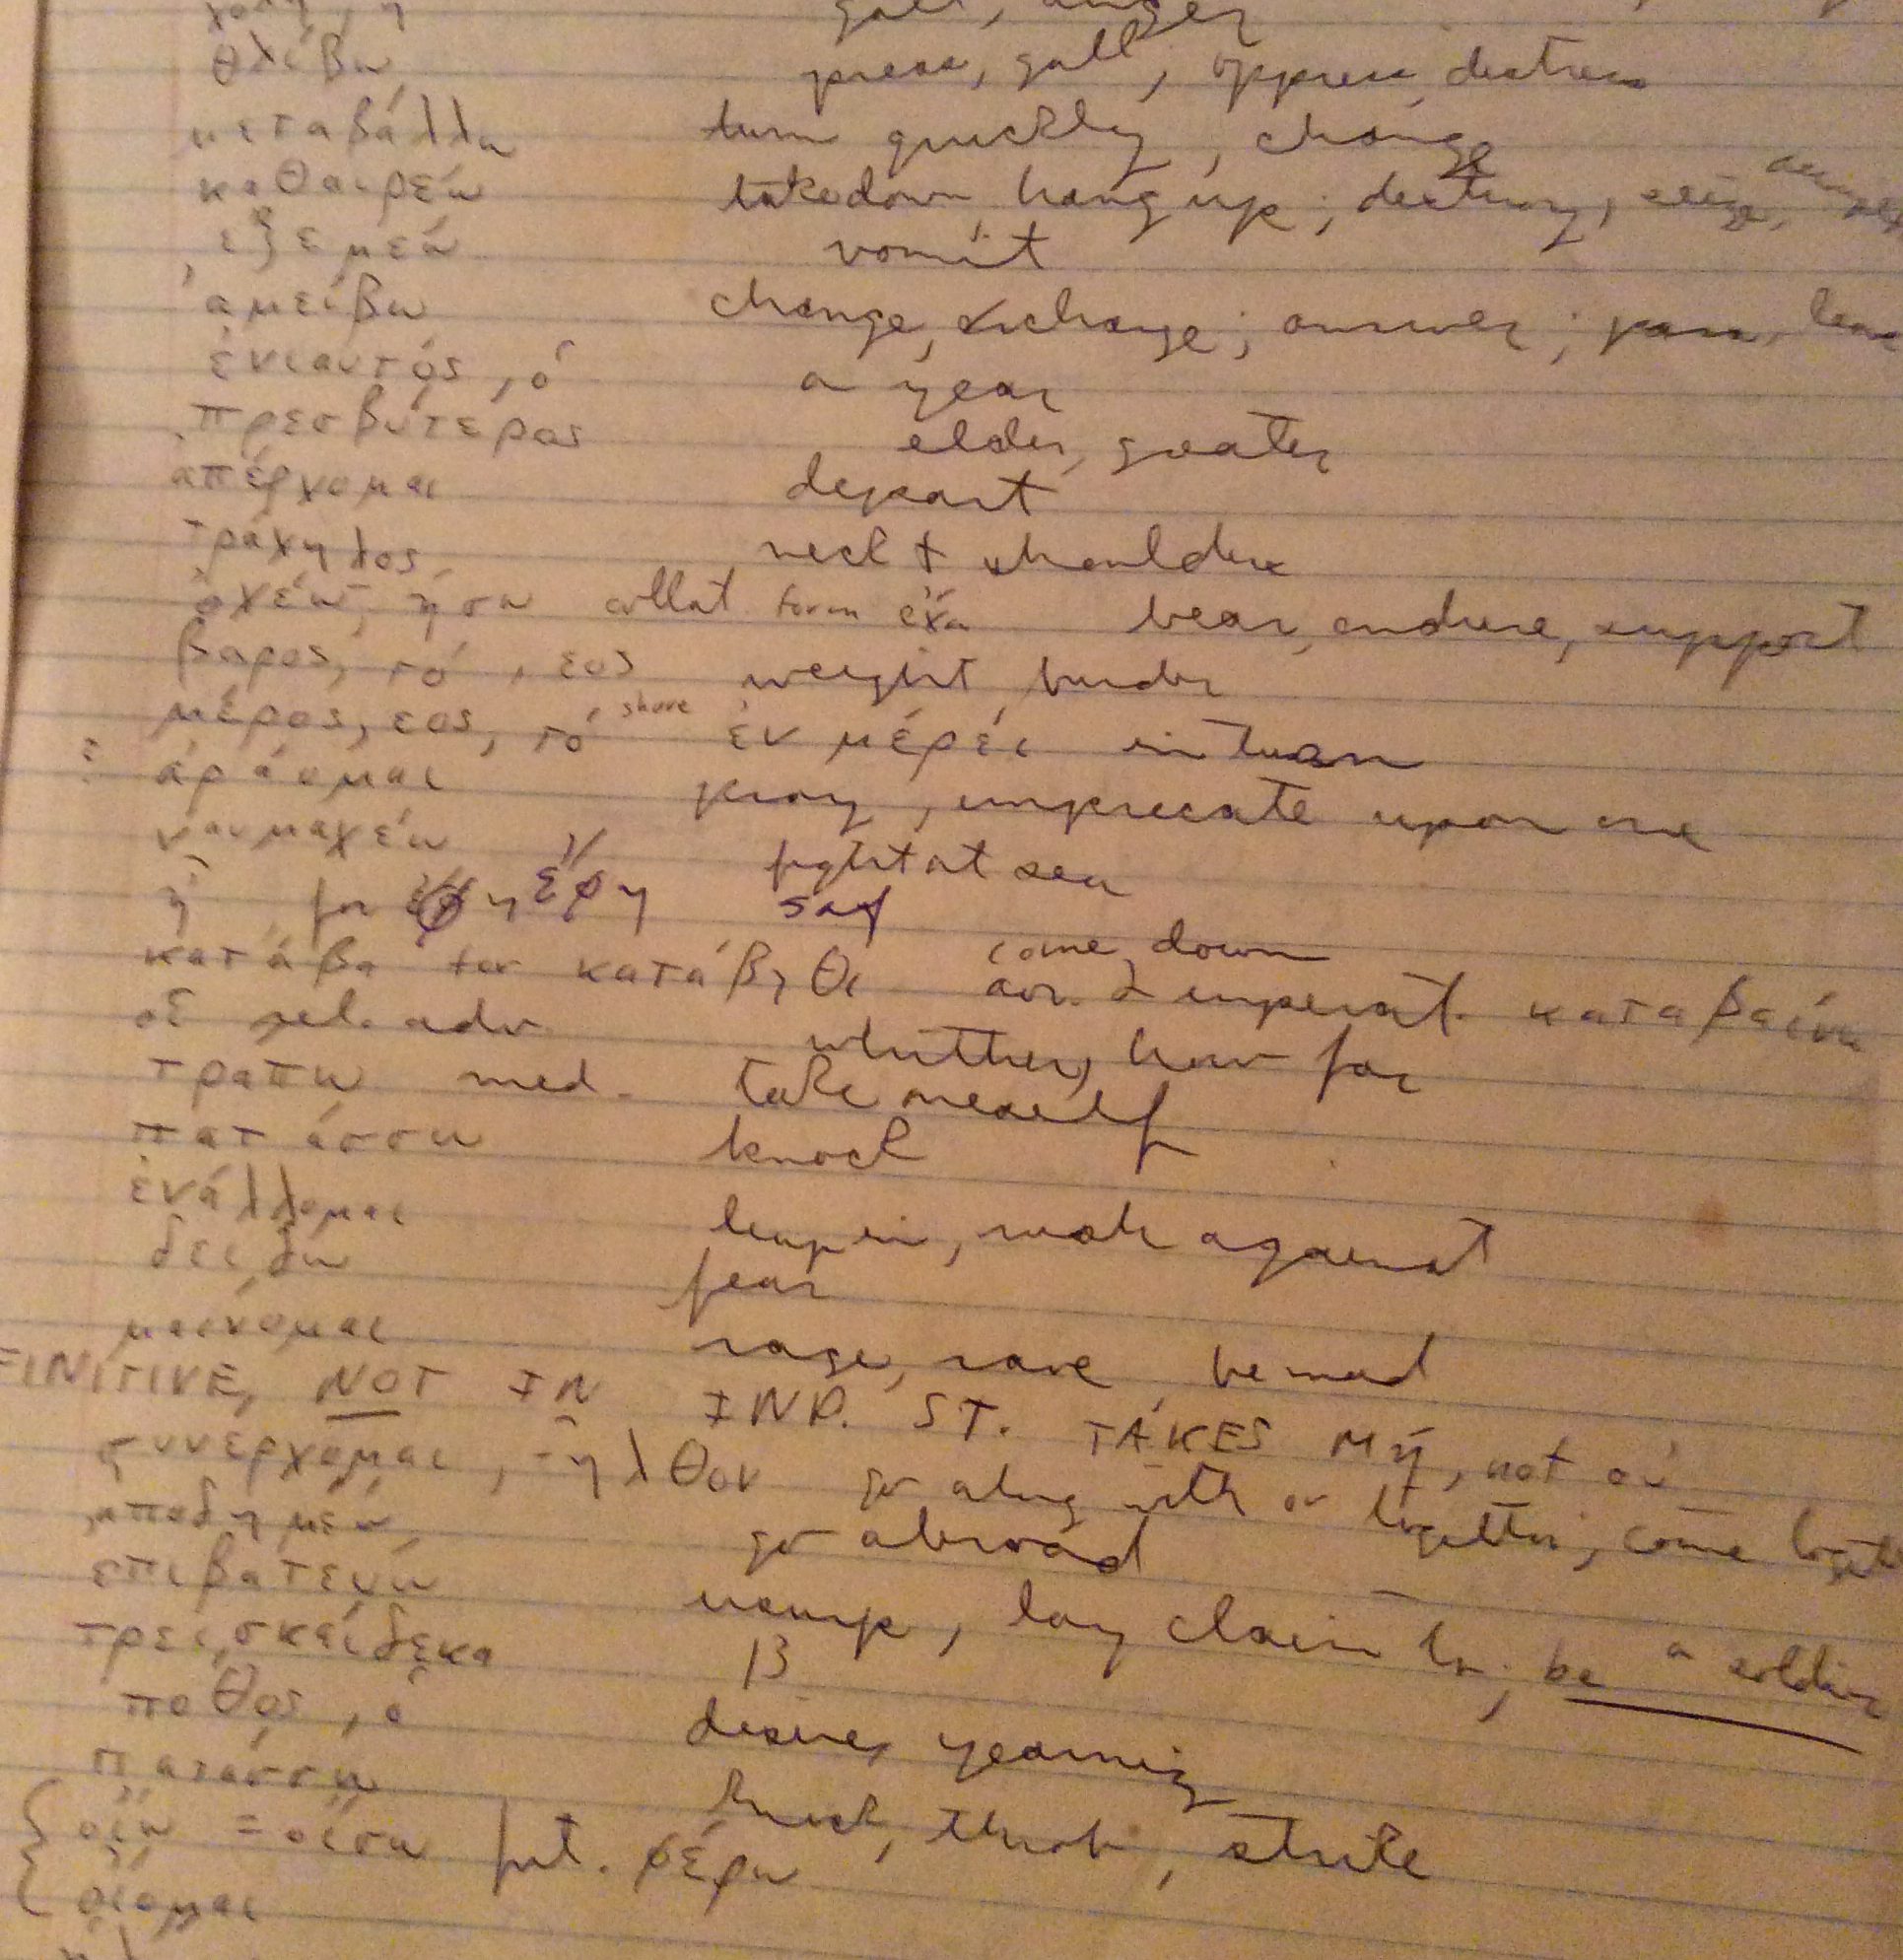 gall, anger
θλίβω press, gall, oppress, distress
μεταβάλλω turn quickly, change
καθαιρέω take down, hang up; destroy, seize,
ἐξεμέω vomit
ἀμείβω change, exchange; answer; pass, leave
ἐνιαυτός, ὁ a year
πρεσβύτερος elder, greater
ἀπέρχομαι depart
τράχηλος neck + shoulders
ὀχέω, ήσω collat. form ἔχω bear, endure, support
βαρος, τό, εος weight, burden
μέρος, εος, τό share ἐν μέρει in turn
ἀράομαι pray, imprecate upon one
ναυμαχέω fight at sea
ἦ for ἔφη say
κατάβα for κατάβηθι come down aor. 2 imperat. καταβαίνω
οἷ rel. adv. whither, how far
τραπω med. take oneself
πατάσσω knock
ἐνάλλομαι leap in, rush against
δείδω fear
μαίνομαι rage, rave, be mad
FINITIVE, NOT IN IND. ST. TAKES Μή, not οὐ
συνέρχομαι, -ηλθον go along with or together, come together
ἀποδημέω go abroad
ἐπιβατεύω usurp, lay claim to; be a soldier
τρεισκαίδεκα 13
ποθος, ὁ desire, yearning
πατάσσω knock, throb, strike
οἴω = οἴσω fut. φέρω
οἴομαι